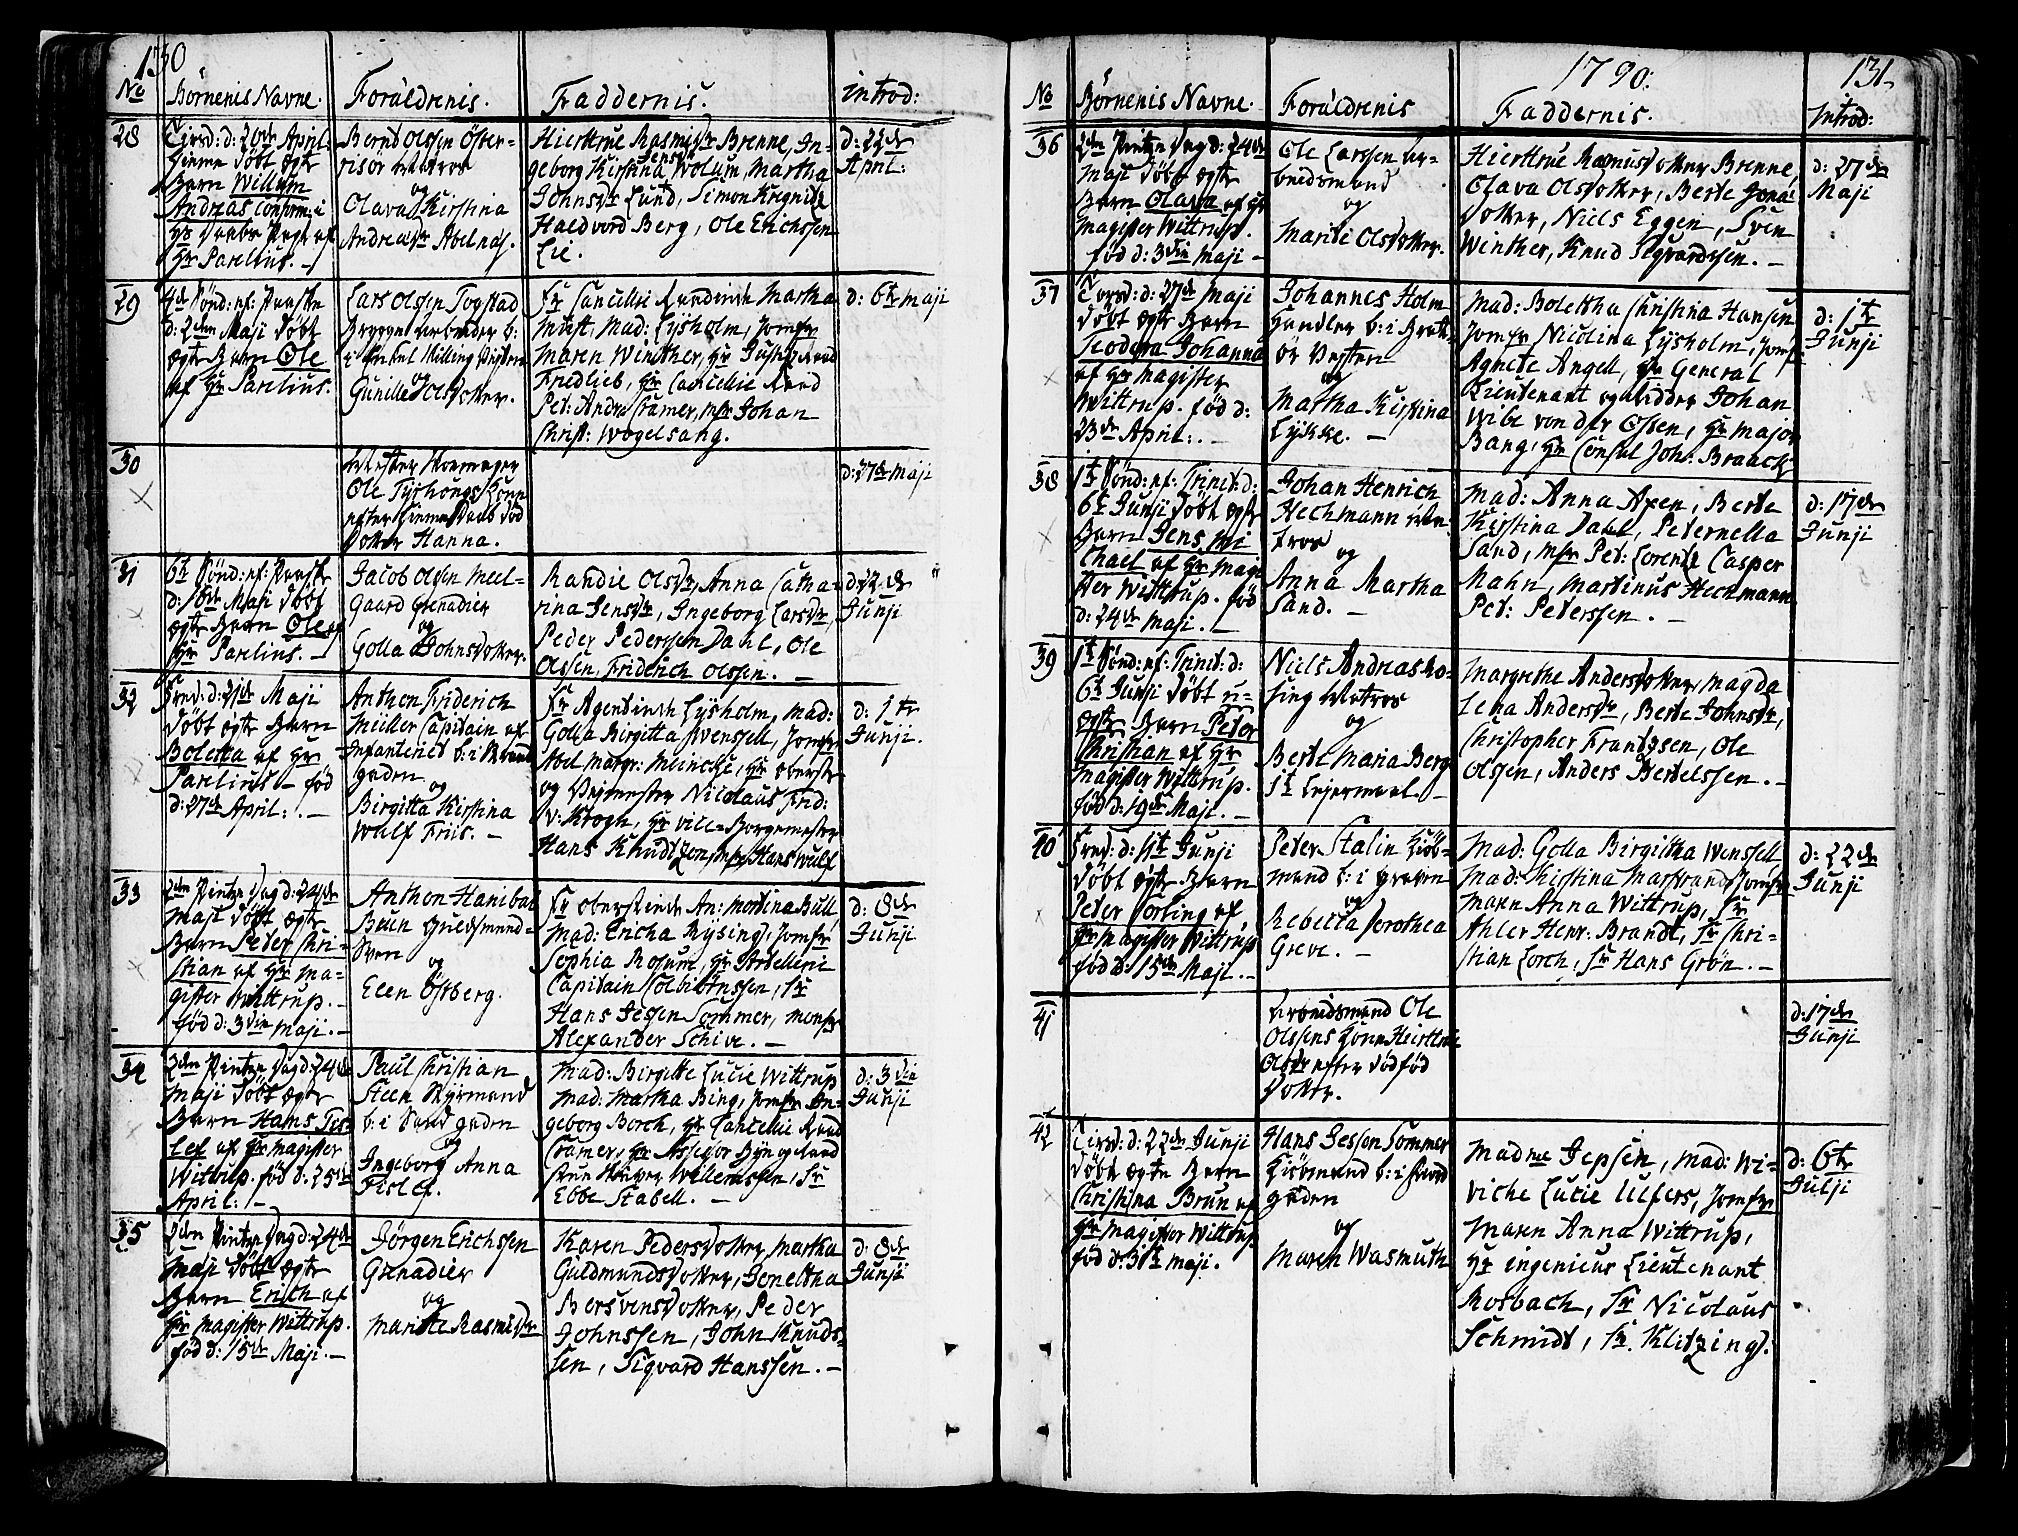 130
No
Børnenis Navne.
Forældrenis.
Faddernis.
introd:
28
Tirsd: d: 20de April
hiemme døbt ægte
Barn Willum
Andreas confirm: i
Hr
Hr Parelius.
Bernt Olssen Öster-
risör Matros
og
Olava Kirstina
Andreasdr Abelnæs.
Hierttrue Rasmusdr Brenne, In-
geborg Kirstina Jensdr Wolum, Martha
Johnsdr Lund, Simon
Haldvord Berg, Ole Erichssen
Lie.
d: 22de
April:
29
4de Sönd: ef: Paaske
d: 2den Maji döbt
ægte Barn Ole
af Hr Parelius.
Lars Olssen Fogstad
Brygge Arbeider b:
i Enkel Milling Veiten
og
Gunille Olsdotter.
Fr Cancellie Raadinde Martha
Must, Mad: Lysholm, Jomfr
Maren Winther, Hr Justiz Raad
Fridlieb, Hr Cancellie Raad
Pet: Andr: Cramer, Msr Johan
Christ: Wogelsang.
d: 6te Maji
30
Mester Skomager
Ole Tyshougs Kone
efter hiemme Daab död
Dotter Hanna.
d: 27de Maji
31
6te Sönd: ef: Paaske
d: 16de Maji döbt
ægte Barn Ole af
Hr Parelius.
Jacob Olssen Meel-
gaard Grenadier
og
Golla Johnsdotter.
Randie Olsdr, Anna Catha-
rina Jensdr, Ingeborg Larsdr,
Peder Pederssen Dahl, Ole
Olssen, Fridrich Olssen.
d: 22de
Junji
32
Fred: d: 21de Maji
döbt ægte Barn
Boletta af Hr
Parelius - föd
d: 27de April: -
Anthon Friderich
Müller Capitain af
Infanteriet b: i Strand
gaden
og
Birgitta Kirstina
Wulf Friis. -
Fr Agentinde Lysholm, Mad:
Golla Birgitta Wenssell, Jomfr
Abel Margr: Meincke, Hr Oberste
og Veimester Nicolaus Frid:
v: Krogh, Hr vice-Borgemester
Hans Knudtzon, Msr Hans Wulf
d: 1te
Junji.
33
2den Pintze Dag d: 24de
Maji döbt ægte
Barn Peter Chri-
stian af Hr Ma-
gister Wittrup. -
föd d: 3die Maji. -
Anthon Hanibal
Buin Guldsmed-
Sven
og
Elen Östberg.
Fr Oberstinde An: Mortina Bull
Mad: Ericha Rysing, Jomfr
Sophia Rosum, Hr Artellerie
Capitain Colbiörnssen, Sr
Hans Jessen Sommer, Monsr
Alexander Schive. -
d: 8de
Junji
34
2den Pintze Dag d: 24de
Maji döbt ægte
Barn Hans Fis-
lef af Hr Magister
Wittrup. föd d: 25de
April: -
Paul Christian
Steen Styrmand
b: i Sand gaden
og
Ingeborg Anna
Fislef.
Mad: Birgitte Lucie Wittrup
Mad: Martha Bing, Jomfr In-
geborg Borch, Hr Cancellie Raad
Cramer, Hr Assessor Byn og Raad
Stue Skriver Willemssen, Sr
Ebbe Stabell. -
d: 3die
Junji
35
2den Pintze Dag d: 24de
Maji döbt ægte
Barn Erich af
Hr Magister Wittrup.
föd d: 15de Maji. -
Jörgen Erichssen
Grenadier
og
Marite Rasmusdr
Karen Pedersdotter, Martha
Guldmundsdotter, Joneltha
Bersvensdotter, Peder
Johnssen, John Knuds-
sen, Sigvard Hanssen. -
d: 8de
Junji
1790:
131
No
Börnenis Navne.
Forældrenis
Faddernis.
introd:
36
2den Pintze Dag d: 24de
Maji döbt ægte
Barn Olava af Hr
Magister Wittrup.
föd d: 3die Maji -
Ole Larssen Ar-
beidsmand
og
Marite Olsdotter.
Hierttrue Rasmusdotter Brenne,
Olava Olsdotter, Berte Jons-
dotter, Niels Eggen, Sven
Winther, Knud Sigvardssen. -
d: 27de
Maji
37
Torsd: d: 27de Maji
döbt ægte Barn
Teodora Johanna
af Hr Magister
Wittrup. föd d:
23de April: -
Johannes Holm
Handler b: i Bratt-
ör Veiten
og
Martha Kirstina
Lykke. -
Mad: Bolettha Christina Hansen
Jomfr Nicolina Lysholm, Jomfr
Agnete Angell, Hr General
Lieutenant og Ridder Johan
Wibe von der Osten, Hr Major
Bang, Hr Consul Joh: Braack
d: 1te
Junji
38
1te Sönd: ef: Trinit: d:
6te Junji döbt ægte
Barn Jens Mi
chael af Hr Magi
ster Wittrup. föd
d: 24de Maji. -
Johan Henrich
Heckmann Ma-
tros
og
Anna Martha
Sand. -
Mad: Anna Axen, Berte
Kirstina Dahl, Peternella
Sand, Msr Pet: Lorentz Casper
Mahn, Martinus Heckmann
Pet: Peterssen. -
d: 17de
Junji
39
1te Sönd: ef: Trinit: d:
6te Junji döbt u-
ægte Barn Peter
Christian af Hr
Magister Wittrup.
föd d: 19de Maji. -
Niels Andreas Ro-
sing Matros
og
Berte Maria Berg
1te Lejermaal. -
Margrethe Andersdotter, Magda
lena Andersdr, Berte Johnsdr,
Christopher Frandssen, Ole
Olssen, Anders Bertelssen. -
40
Fred: d: 11te Junji
döbt ægte Barn
Peter Sorling af
Hr Magister Wittrup
föd d: 15de Maji. -
Peter Stalin Kiöb-
mand b: i Graven
og
Rebecca Dorothea
Greve. -
Mad: Golla Birgittha Wenssell
Mad: Kirstina Marstrand, Jomfr
Maren Anna Wittrup, Sr
Ahler Henr: Brandt, Sr Chri-
stian Lorch, Sr Hans Grön. -
d: 22de
Junji
41
Arbeidsmand Ole
Olssens Kone Hierttrue
Olsdr efter dödföd
Dotter.
d: 17de
Junji
42
Tirsd: d: 22de Junji
döbt ægte Barn
Christina Brun af
Hr Magister Wittrup
föd d: 31te Maji.
Hans Jessen Sommer
Kiöbmand b: i Strand
gaden
og
Maren Wasmuth
Madme Jepsen, Mad: Wi-
viche Lucie Ulfers, Jomfr
Maren Anna Wittrup,
Hr ingenieur Lieutenant
Rosbach, Sr Nicolaus
Schmidt, Sr. Klitzing.
d: 6te
Julji